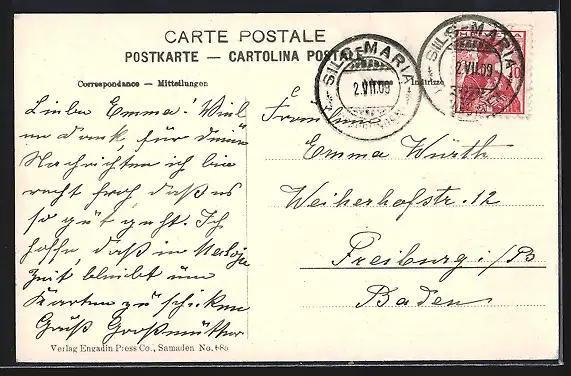 CARTE POSTALE
POSTKARTE — CARTOLINA POSTALE
Correspondance — Mitteilungen
Indirizzo
SILS-MARIA
2.VII.09
SILS-MARIA
2.VII.09
10
Liebe Emma! Viel
en Dank, für deine
Nachrichten ich bin
recht froh, daß es
so gut geht. Ich
hoffe, daß in Maloja
Zeit bleibt um
Karten zu schicken
Gruß Großmutter
Fräulein
Emma Würth
Weiherhofstr. 12
Freiburg i/B
Baden
Verlag Engadin Press Co., Samaden No. 685